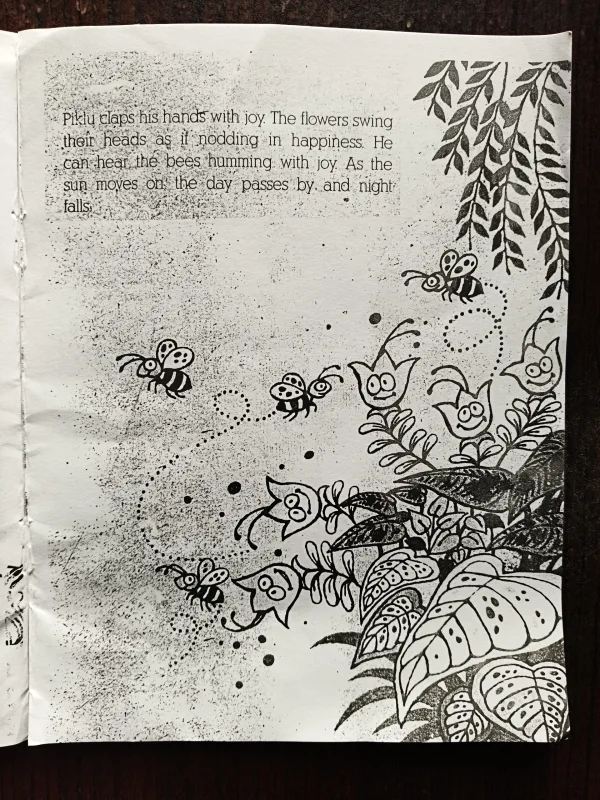 Piklu claps his hands with joy. The flowers swing
their heads as if nodding in happiness. He
can hear the bees humming with joy. As the
sun moves on, the day passes by and night
falls.